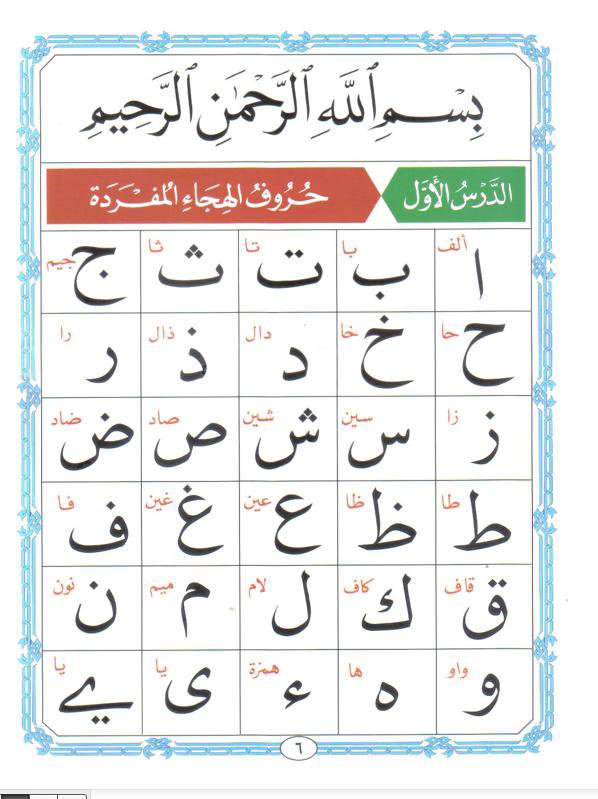 بِسْمِ ٱللَّهِ ٱلرَّحْمَٰنِ ٱلرَّحِيمِ
الدَّرْسُ الأَوَّل
حُرُوفُ الهِجَاءِ المُفْرَدَة
ا ألف ب با ت تا ث ثا ج جيم
ح حا خ خا د دال ذ ذال ر را
ز زا س سين ش شين ص صاد ض ضاد
ط طا ظ ظا ع عين غ غين ف فا
ق قاف ك كاف ل لام م ميم ن نون
و واو ه ها ء همزة ى يا ے يا
٦